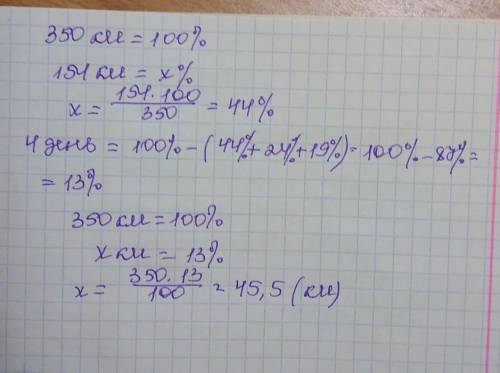 350 км = 100%
154 км = x%
x = 154·100/350 = 44%
4 день = 100% - (44%+24%+19%) = 100% - 87% =
= 13%
350 км = 100%
x км = 13%
x = 350·13/100 = 45,5 (км)